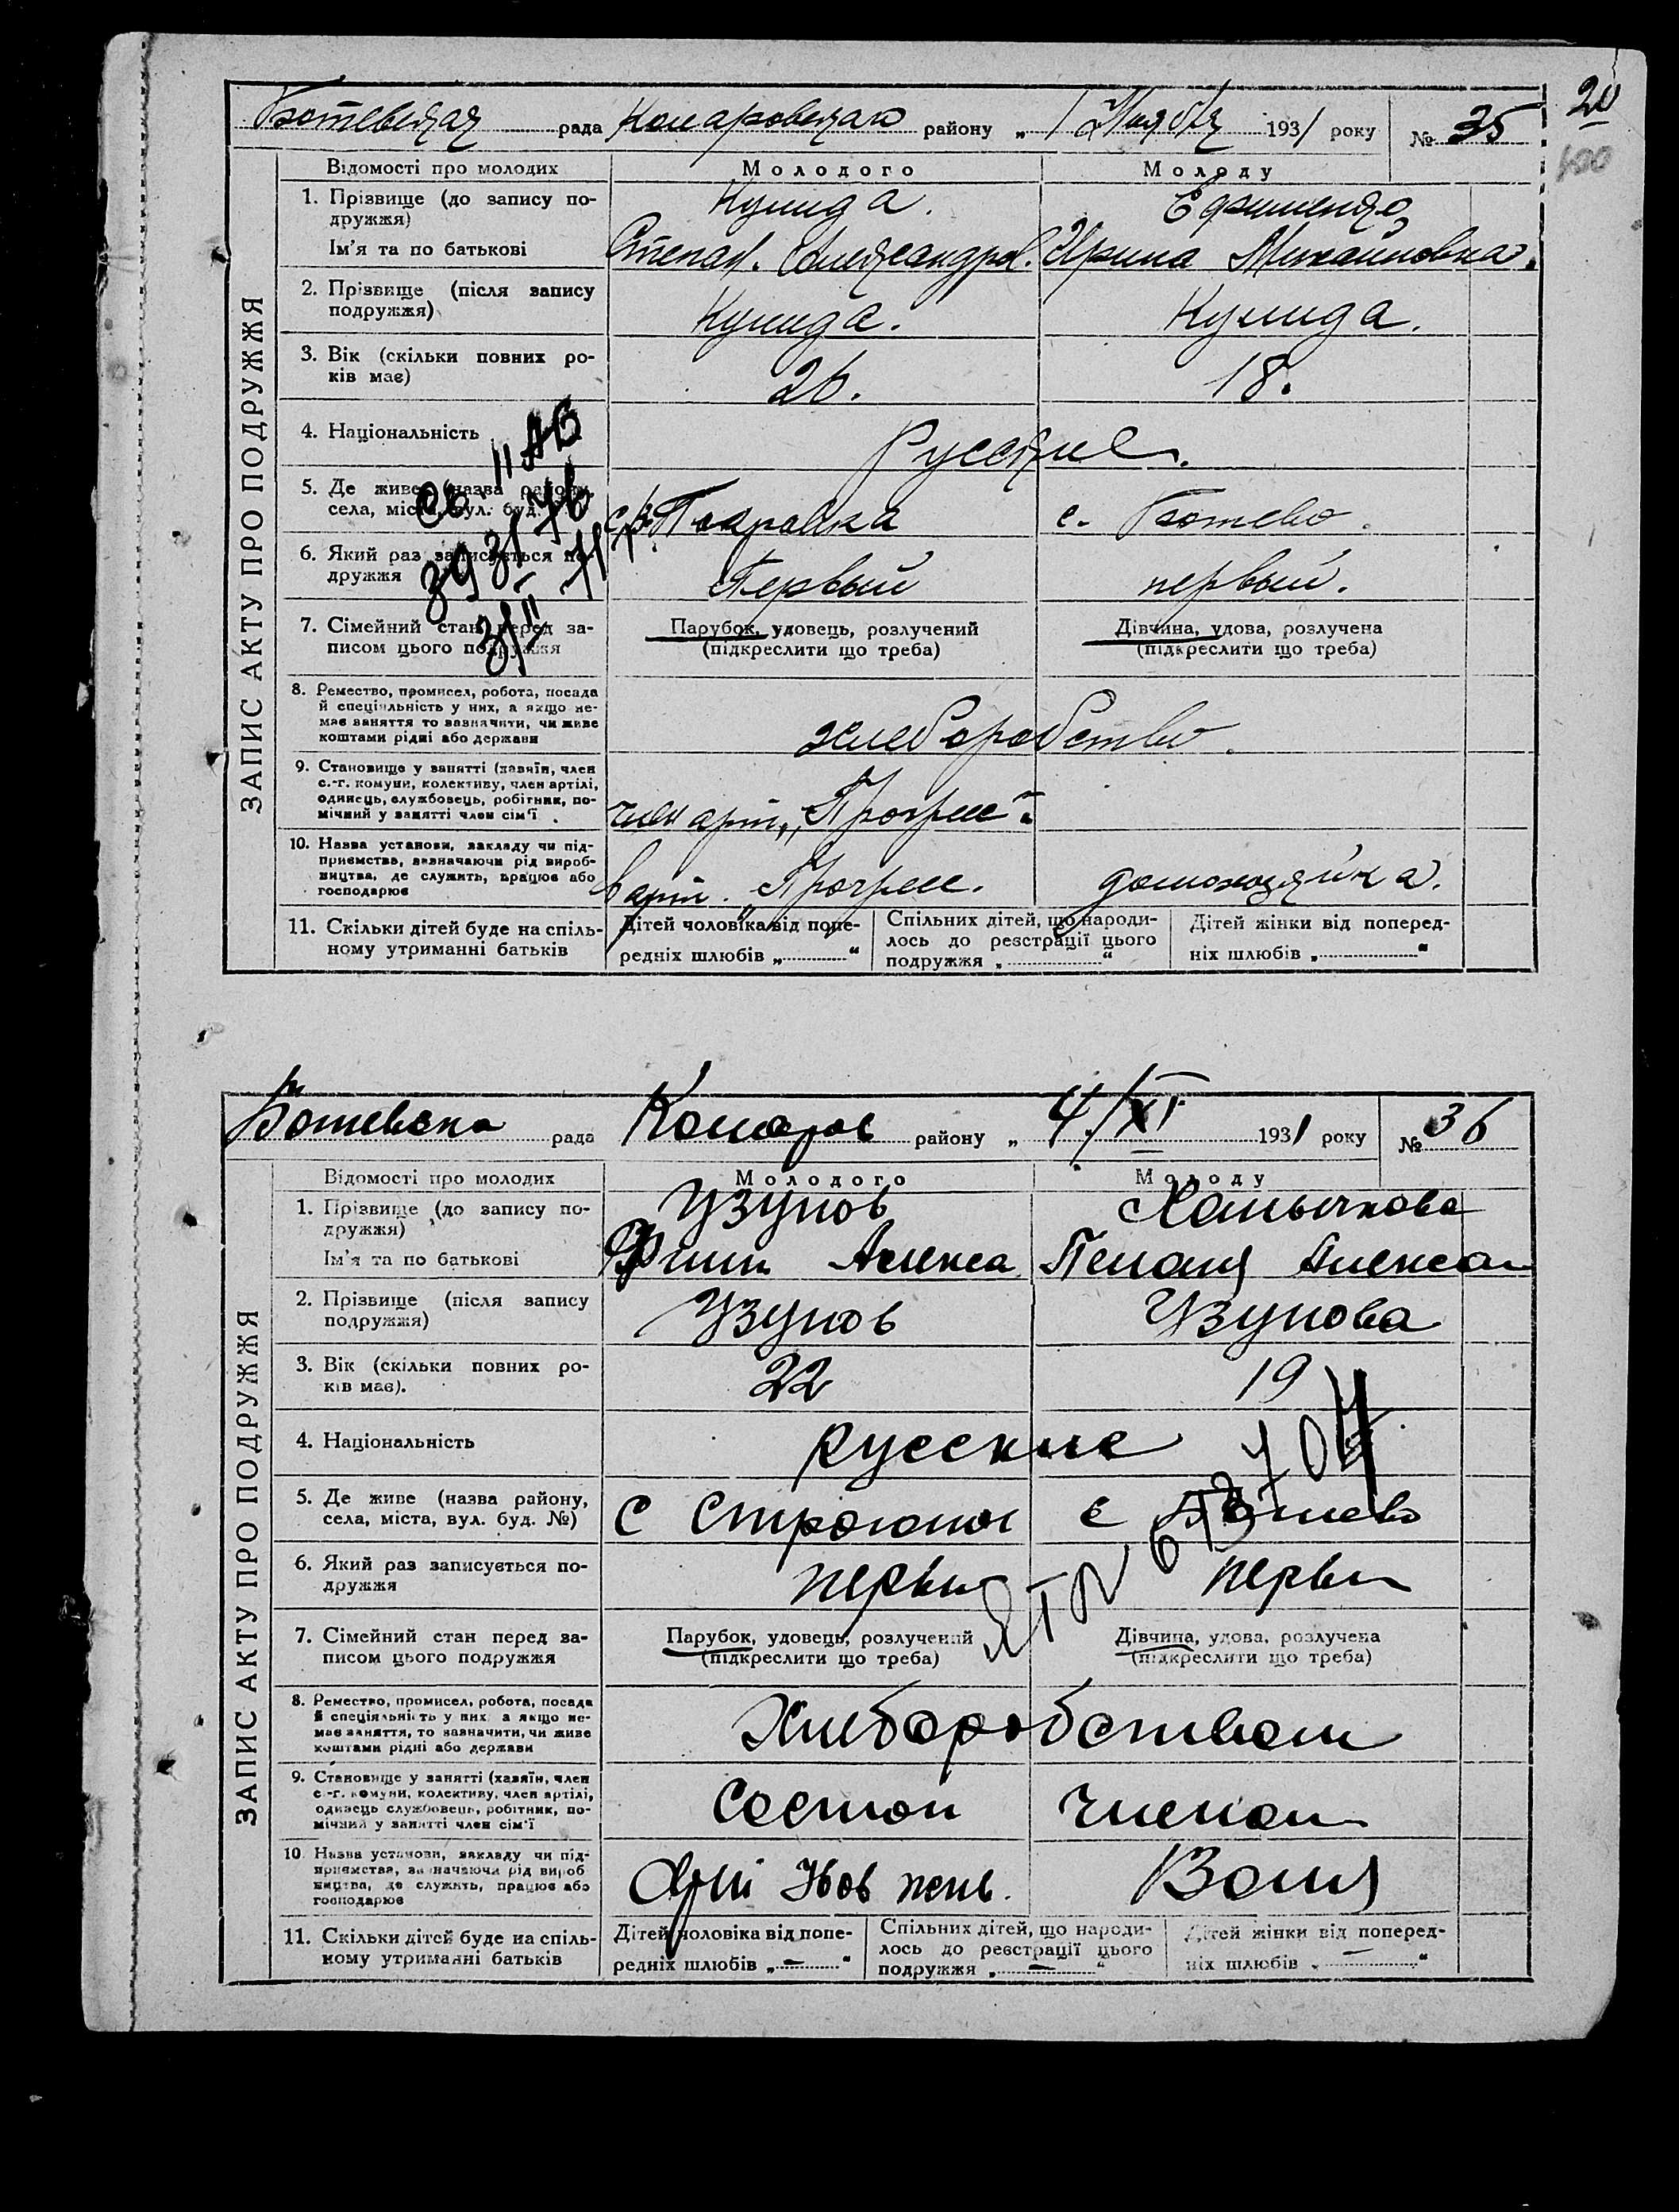 20
100
Ботевская рада Комаровского району „ 1 Ноября 1931 року № 35
ЗАПИС АКТУ ПРО ПОДРУЖЖЯ
Відомості про молодих Молодого Молоду
1. Прізвище (до запису по-
дружжя)
Кулида. Ефименко
Ім'я та по батькові Степан. Александров. Ирина Михайловна.
2. Прізвище (після запису
подружжя)
Кулида. Кулида.
3. Вік (скільки повних ро-
ків має)
26. 18.
4. Національність Русские.
5. Де живе (назва району,
села, міста, вул. буд.
Покровка с. Ботево.
6. Який раз записується по-
дружжя
Первый первый.
7. Сімейний стан перед за-
писом цього подружжя
Парубок, удовець, розлучений
(підкреслити що треба)
Дівчина, удова, розлучена
(підкреслити що треба)
8. Ремество, промисел, робота, посада
й спеціяльність у них, а якщо не-
має заняття то зазначити, чи живе
коштами рідні або держави
хлеборобство.
9. Становище у занятті (хазяїн, член
с.-г. комуни, колективу, член артілі,
одинець, службовець, робітник, по-
мічний у занятті член сім'ї
член арт. „Прогресс".
10. Назва установи, закладу чи під-
приємства, зазначаючи рід вироб-
ництва, де служить, працює або
господарює
в арт. Прогресс. домохозяйка.
11. Скільки дітей буде на спіль-
ному утриманні батьків
Дітей чоловіка від попе-
редніх шлюбів „ “
Спільних дітей, що народи-
лось до реєстрації цього
подружжя „ “
Дітей жінки від поперед-
ніх шлюбів „ “
Ботевска рада Комаров району „ 4/XI 1931 року № 36
ЗАПИС АКТУ ПРО ПОДРУЖЖЯ
Відомості про молодих Молодого Молоду
1. Прізвище (до запису по-
дружжя)
Узунов
Ім'я та по батькові Алекса Пелагия Алексан
2. Прізвище (після запису
подружжя)
Узунов Узунова
3. Вік (скільки повних ро-
ків має).
22 19
4. Національність русские
5. Де живе (назва району,
села, міста, вул. буд. №)
с Строганов с Ботево
6. Який раз записується по-
дружжя
первы первы
7. Сімейний стан перед за-
писом цього подружжя
Парубок, удовець, розлучений
(підкреслити що треба)
Дівчина, удова, розлучена
(підкреслити що треба)
8. Ремество, промисел, робота, посада
й спеціяльність у них, а якщо не-
має заняття, то зазначити, чи живе
коштами рідні або держави
Хлеборобством
9. Становище у занятті (хазяїн, член
с.-г. комуни, колективу, член артілі,
одинець службовець, робітник, по-
мічний у занятті член сім'ї
Состои членом
10. Назва установи, закладу чи під-
приємства, зазначаючи рід вироб
ництва, де служить, працює або
господарює
Воля
11. Скільки дітей буде на спіль-
ному утриманні батьків
Дітей чоловіка від попе-
редніх шлюбів „ — “
Спільних дітей, що народи-
лось до реєстрації цього
подружжя „ — “
Дітей жінки від поперед-
ніх шлюбів „ — “